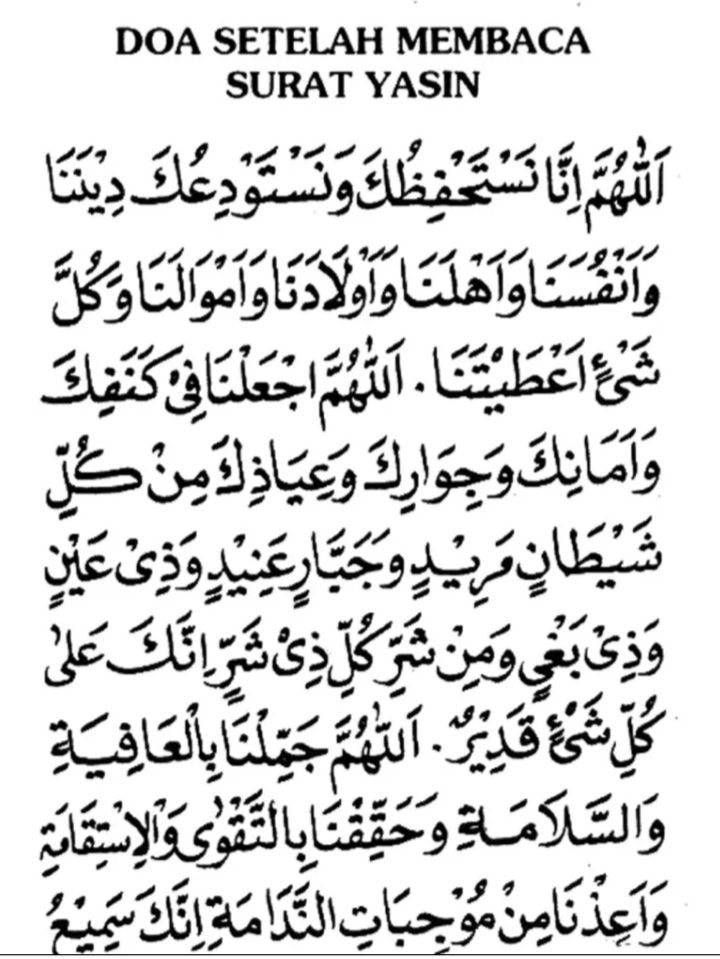 DOA SETELAH MEMBACA
SURAT YASIN
اَللّٰهُمَّ اِنَّا نَسْتَحْفِظُكَ وَنَسْتَوْدِعُكَ دِيْنَنَا
وَاَنْفُسَنَا وَاَهْلَنَا وَاَوْلَادَنَا وَاَمْوَالَنَا وَكُلَّ
شَيْئٍ اَعْطَيْتَنَا . اَللّٰهُمَّ اجْعَلْنَا فِيْ كَنَفِكَ
وَاَمَانِكَ وَجِوَارِكَ وَعِيَاذِكَ مِنْ كُلِّ
شَيْطَانٍ مَرِيْدٍ وَجَبَّارٍ عَنِيْدٍ وَذِيْ عَيْنٍ
وَذِيْ بَغْيٍ وَمِنْ شَرِّ كُلِّ ذِيْ شَرٍّ اِنَّكَ عَلٰى
كُلِّ شَيْئٍ قَدِيْرٌ . اَللّٰهُمَّ جَمِّلْنَا بِالْعَافِيَةِ
وَالسَّلَامَةِ وَحَقِّقْنَا بِالتَّقْوٰى وَالْاِسْتِقَامَةِ
وَاَعِذْنَا مِنْ مُوْجِبَاتِ النَّدَامَةِ اِنَّكَ سَمِيْعُ